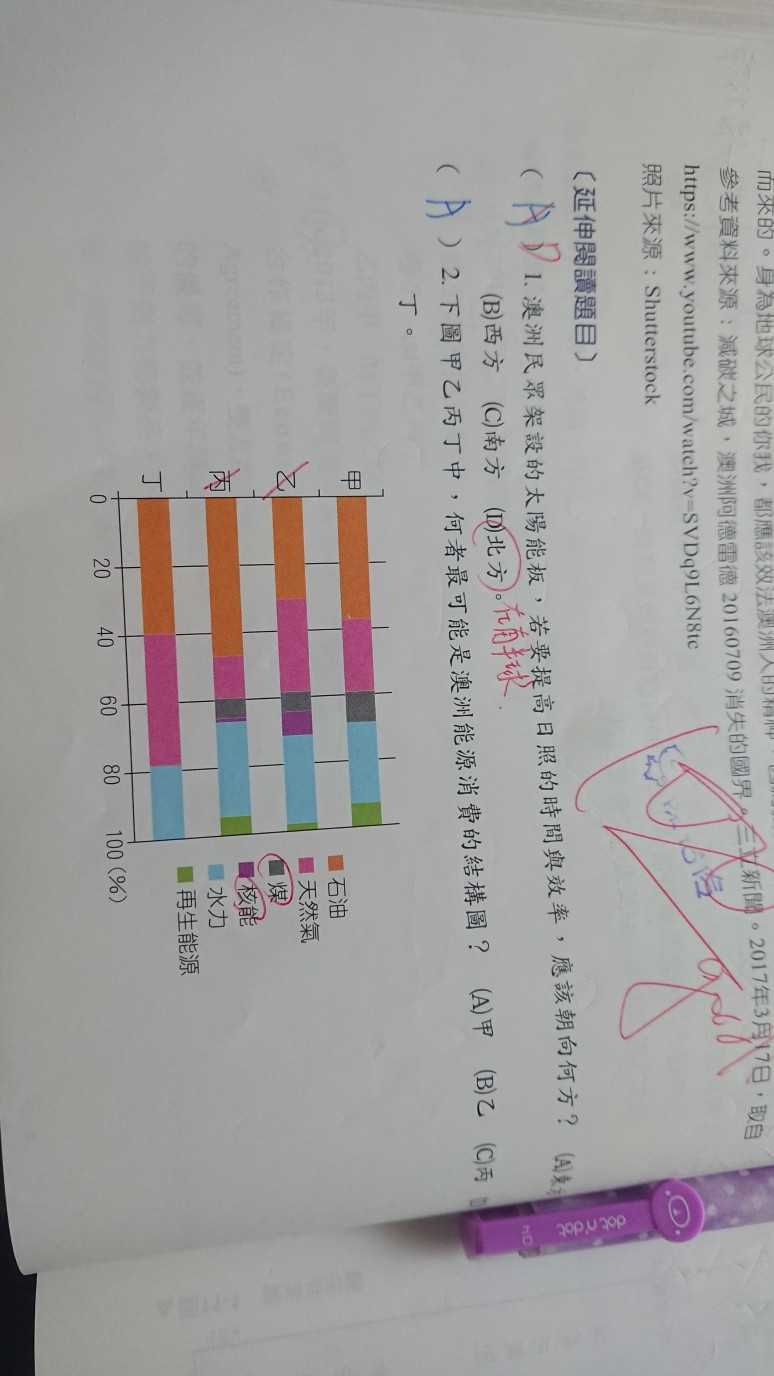 而來的。身為地球公民的你我，都應該效法澳洲人的精神
參考資料來源：減碳之城，澳洲阿德雷德 20160709 消失的國界。三立新聞。2017年3月17日，取自
https://www.youtube.com/watch?v=SVDq9L6N8tc
照片來源：Shutterstock
（延伸閱讀題目）
（ A D ）1. 澳洲民眾架設的太陽能板，若要提高日照的時間與效率，應該朝向何方？ (A)東方
(B)西方 (C)南方 (D)北方。在南半球.
（ A ）2. 下圖甲乙丙丁中，何者最可能是澳洲能源消費的結構圖？ (A)甲 (B)乙 (C)丙
丁。
甲
乙
丙
丁
0 20 40 60 80 100 (%)
石油
天然氣
煤
核能
水力
再生能源
dot n dot